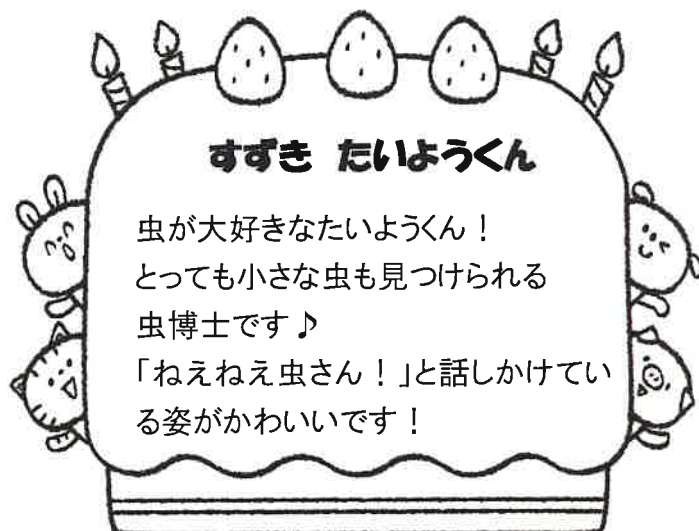 すずき たいようくん
虫が大好きなたいようくん！
とっても小さな虫も見つけられる
虫博士です♪
「ねえねえ虫さん！」と話しかけてい
る姿がかわいいです！